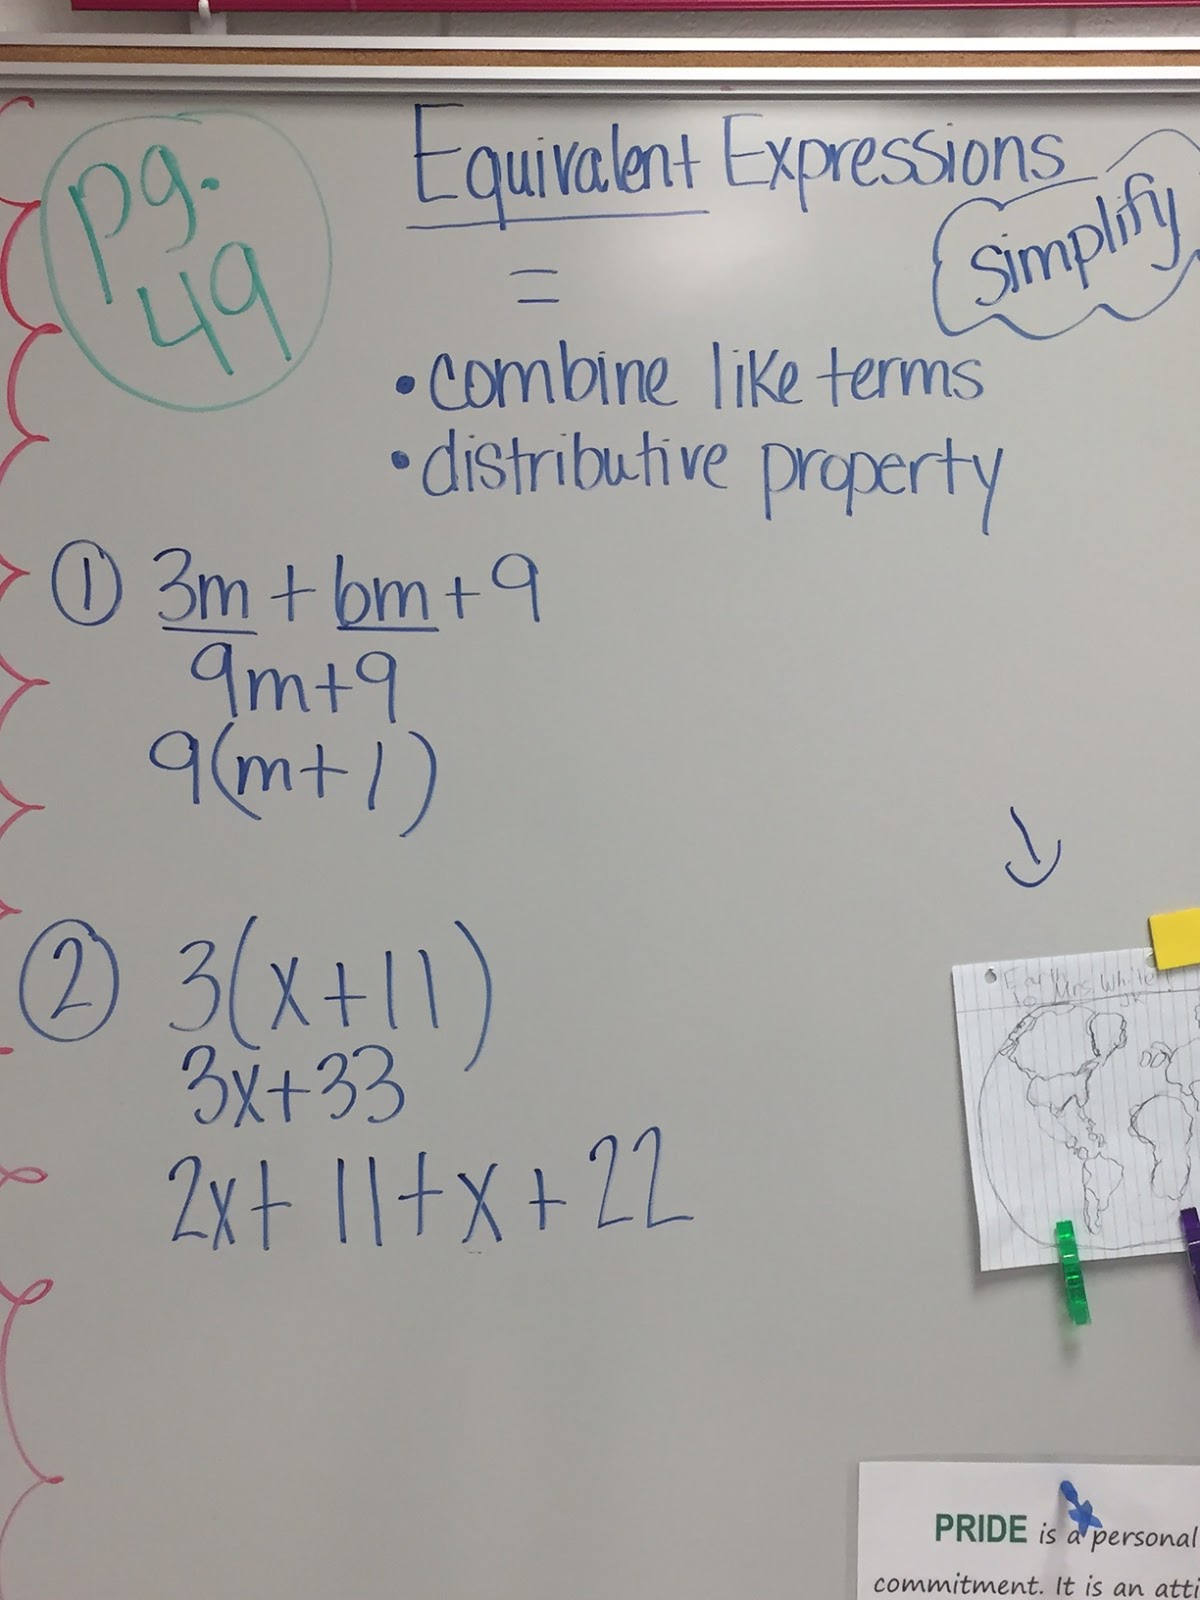 pg.
49
Equivalent Expressions
simplify
=
• combine like terms
• distributive property
① 3m + 6m + 9
9m+9
9(m+1)
② 3(x+11)
3x+33
2x+ 11+x+22
Earth
to Mrs. White
jk
PRIDE is a personal
commitment. It is an atti